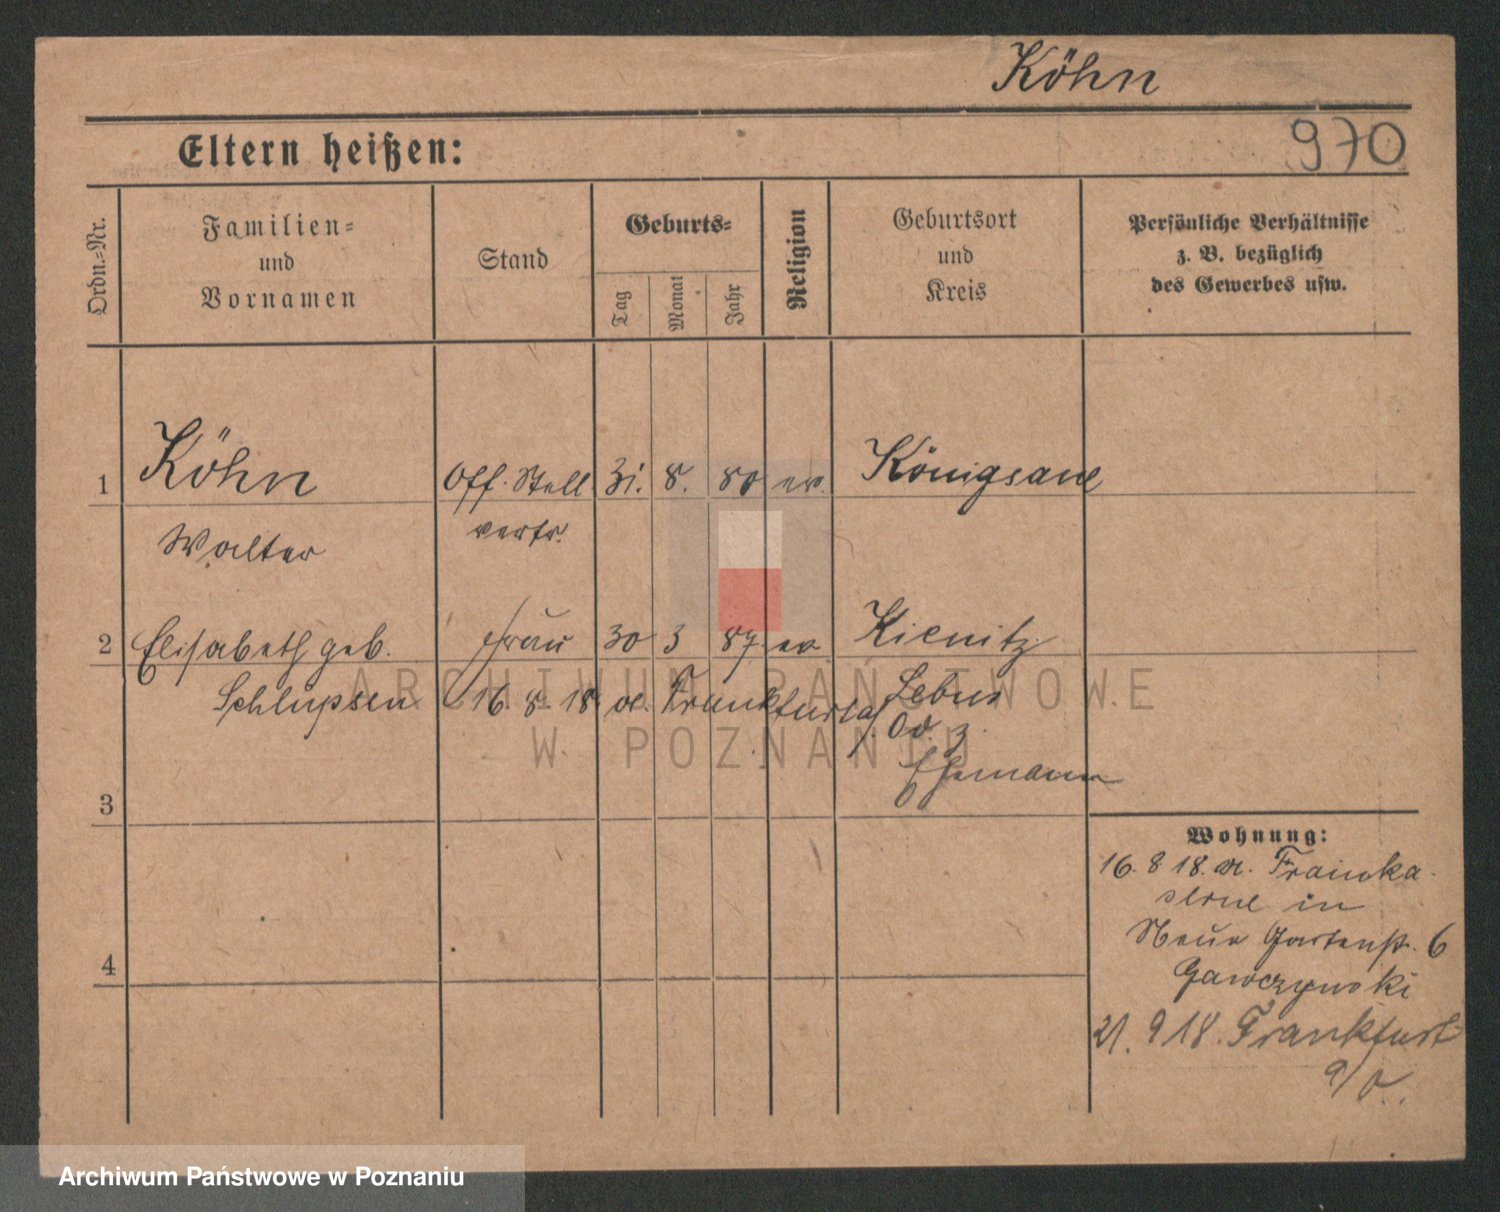 Köhn
970
Eltern heißen:
Ordn.-Nr.
Familien-
und
Vornamen
Stand
Geburts-
Tag
Monat
Jahr
Religion
Geburtsort
und
Kreis
Persönliche Verhältnisse
z. B. bezüglich
des Gewerbes usw.
1
Köhn
Off. Stell
31. 8. 80 ev.
Königsaue
Walter
vertr.
2
Elisabeth geb.
Frau
30 3 87. ev.
Kienitz
Schlupsen
16. 8. 18. v. Frankfurt a/
Lebus
Od. z.
Ehemann
3
4
Wohnung:
16. 8 18. v. Trainka-
serne in
Neue Gartenst. 6
Gawczynski
21. 9 18. Frankfurt
a/O.
ARCHIWUM PAŃSTWOWE
W POZNANIU
Archiwum Państwowe w Poznaniu